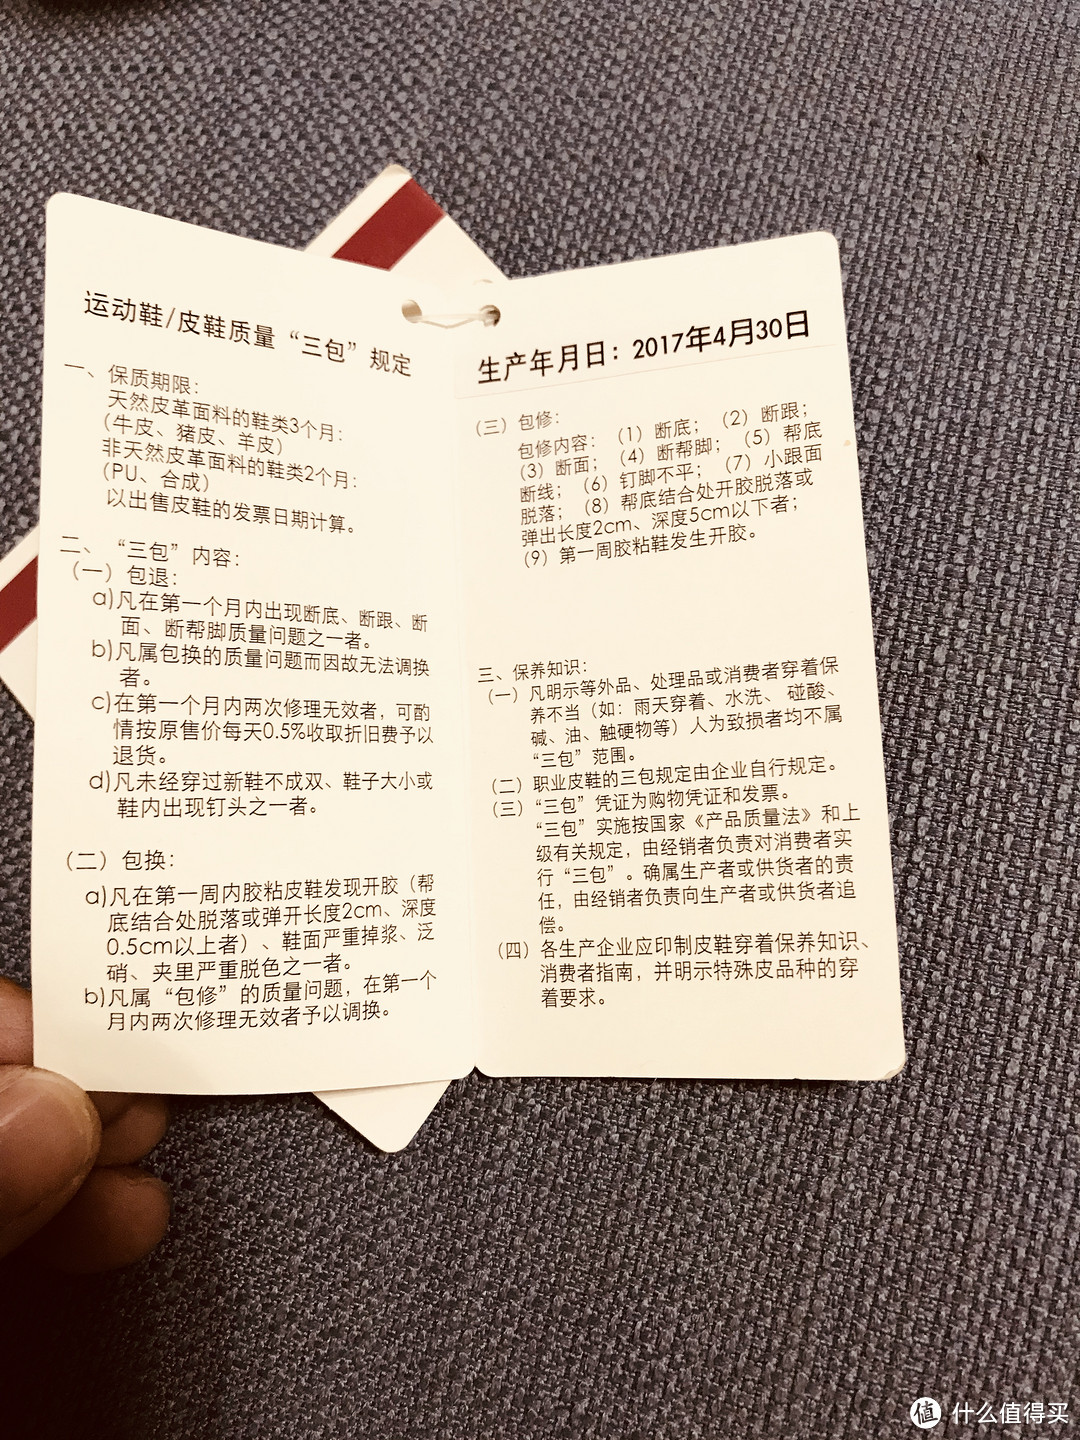 运动鞋/皮鞋质量“三包”规定
一、保质期限：
天然皮革面料的鞋类3个月：
（牛皮、猪皮、羊皮）
非天然皮革面料的鞋类2个月：
（PU、合成）
以出售皮鞋的发票日期计算。
二、“三包”内容：
（一）包退：
a)凡在第一个月内出现断底、断跟、断
面、断帮脚质量问题之一者。
b)凡属包换的质量问题而因故无法调换
者。
c)在第一个月内两次修理无效者，可酌
情按原售价每天0.5%收取折旧费予以
退货。
d)凡未经穿过新鞋不成双、鞋子大小或
鞋内出现钉头之一者。
（二）包换：
a)凡在第一周内胶粘皮鞋发现开胶（帮
底结合处脱落或弹开长度2cm、深度
0.5cm以上者）、鞋面严重掉浆、泛
硝、夹里严重脱色之一者。
b)凡属“包修”的质量问题，在第一个
月内两次修理无效者予以调换。
生产年月日：2017年4月30日
（三）包修：
包修内容：（1）断底；（2）断跟；
（3）断面；（4）断帮脚；（5）帮底
断线；（6）钉脚不平；（7）小跟面
脱落；（8）帮底结合处开胶脱落或
弹出长度2cm、深度5cm以下者；
（9）第一周胶粘鞋发生开胶。
三、保养知识：
（一）凡明示等外品、处理品或消费者穿着保
养不当（如：雨天穿着、水洗、碰酸、
碱、油、触硬物等）人为致损者均不属
“三包”范围。
（二）职业皮鞋的三包规定由企业自行规定。
（三）“三包”凭证为购物凭证和发票。
“三包”实施按国家《产品质量法》和上
级有关规定，由经销者负责对消费者实
行“三包”。确属生产者或供货者的责
任，由经销者负责向生产者或供货者追
偿。
（四）各生产企业应印制皮鞋穿着保养知识、
消费者指南，并明示特殊皮品种的穿
着要求。
值 什么值得买